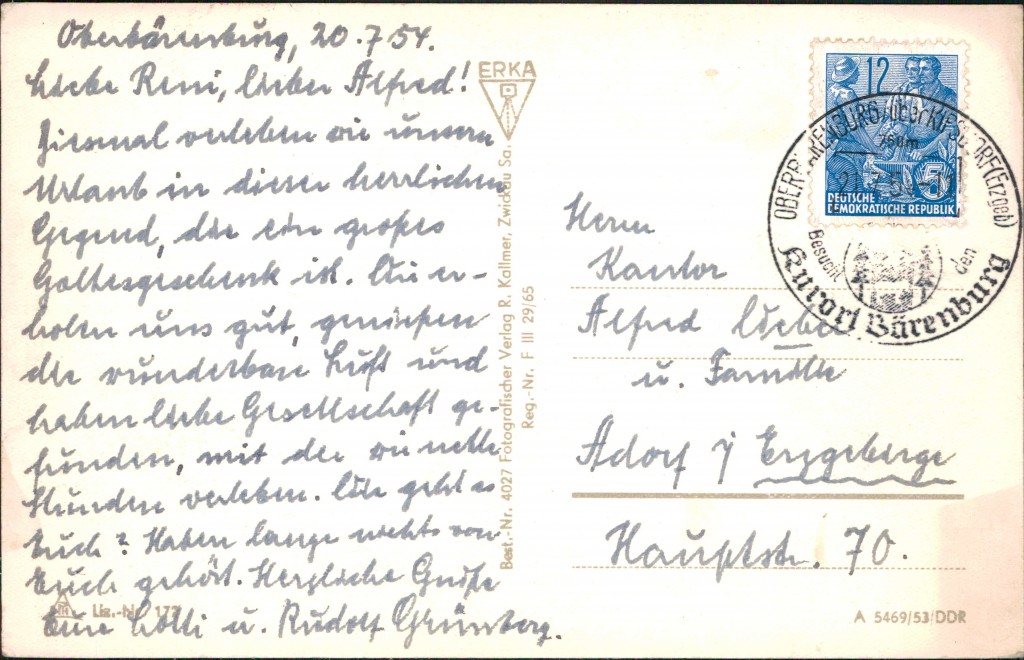 Oberbärenburg, 20.7.54.
Liebe Reni, lieber Alfred!
Diesmal verleben wir unsern
Urlaub in dieser herrlichen
Gegend, die ein großes
Gottesgeschenk ist. Wir er-
holen uns gut, genießen
die wunderbare Luft und
haben liebe Gesellschaft ge-
funden, mit der wir nette
Stunden verleben. Wie geht es
Euch? Haben lange nichts von
Euch gehört. Herzliche Grüße
Eure Lotti u. Rudolf Grünberg.
Liz.-Nr. 177
ERKA
Best.-Nr. 4027 Fotografischer Verlag R. Kallmer, Zwickau Sa.
Reg.-Nr. F III 29/65
12
5
DEUTSCHE
DEMOKRATISCHE REPUBLIK
OBERBÄRENBURG
(Erzgeb)
Besucht den
Kurort Bärenburg
Herrn
Kantor
Alfred Liebe
u. Familie
Adorf i/ Erzgebirge
Hauptstr. 70.
A 5469/53/DDR